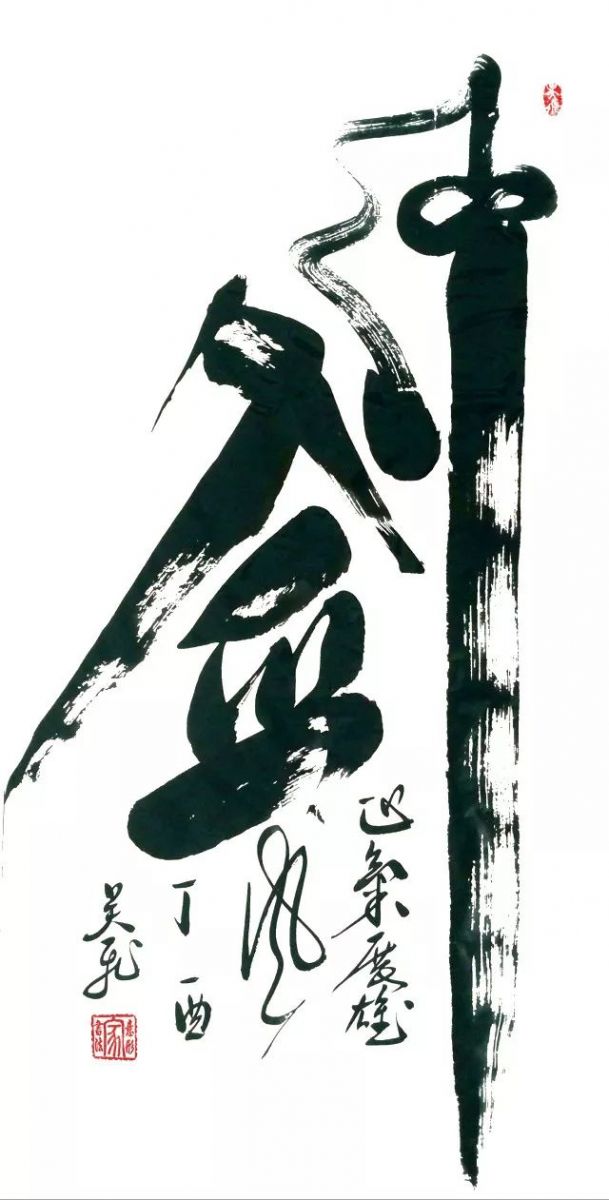 剑
正氣展雄
風
丁酉
吴